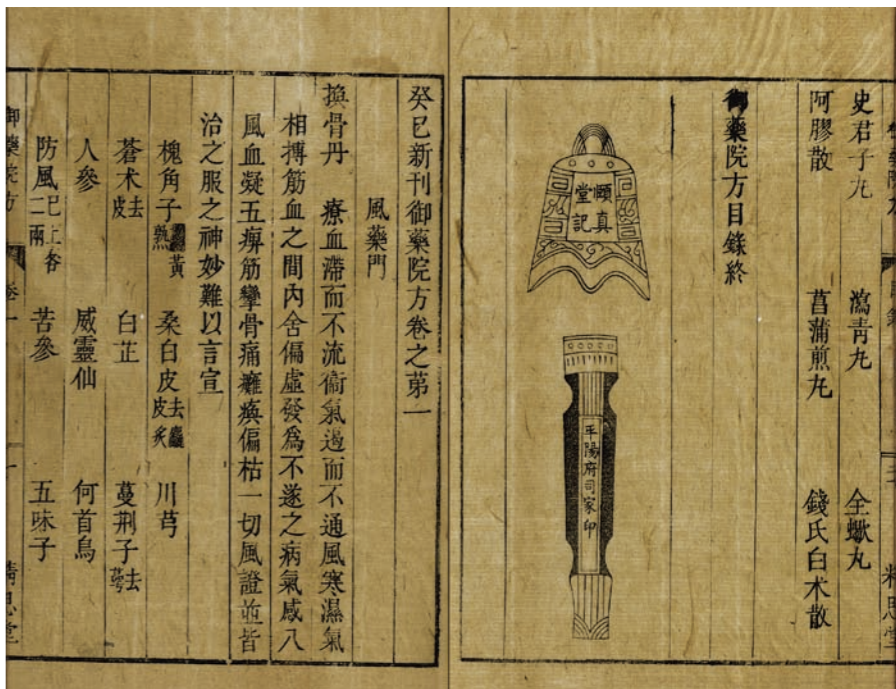 史君子九 瀉青九 全蠍丸
阿膠散 菖蒲煎九 錢氏白术散
御藥院方目錄終
頤真
堂記
平陽府司家印
癸巳新刊御藥院方卷之苐一
風藥門
換骨丹 療血滯而不流衞氣遏而不通風寒濕氣
相搏筋血之間內舍偏虛發爲不遂之病氣感八
風血凝五痹筋攣骨痛癱瘓偏枯一切風證並皆
治之服之神妙難以言宣
槐角子熟黃 桑白皮去麤皮炙 川芎
蒼术去皮 白芷 蔓荆子去萼
人參 威靈仙 何首烏
防風已上各二兩 苦參 五味子
御藥院方 卷一 一 精思堂